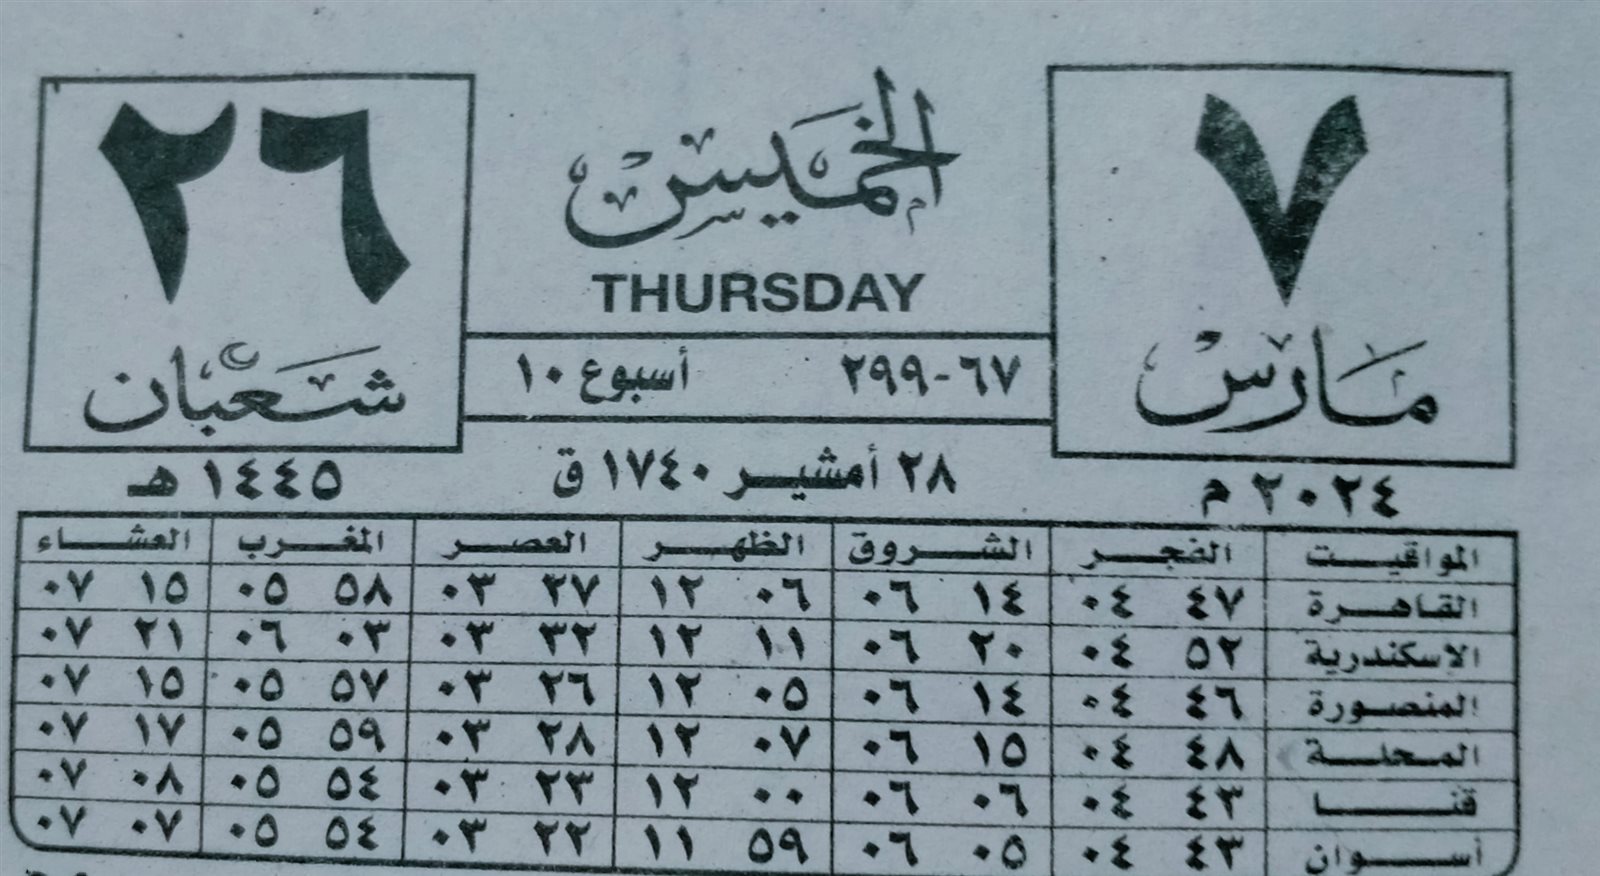 ٧
مارس
٢٠٢٤ م
الخميس
THURSDAY
٦٧-٢٩٩ أسبوع ١٠
٢٨ أمشير ١٧٤٠ ق
٢٦
شعبان
١٤٤٥ هـ
المواقيت الفجر الشروق الظهر العصر المغرب العشاء
القاهرة ٤٧ ٠٤ ١٤ ٠٦ ٠٦ ١٢ ٢٧ ٠٣ ٥٨ ٠٥ ١٥ ٠٧
الإسكندرية ٥٢ ٠٤ ٢٠ ٠٦ ١١ ١٢ ٣٢ ٠٣ ٠٣ ٠٦ ٢١ ٠٧
المنصورة ٤٦ ٠٤ ١٤ ٠٦ ٠٥ ١٢ ٢٦ ٠٣ ٥٧ ٠٥ ١٥ ٠٧
المحلة ٤٨ ٠٤ ١٥ ٠٦ ٠٧ ١٢ ٢٨ ٠٣ ٥٩ ٠٥ ١٧ ٠٧
قنا ٤٣ ٠٤ ٠٦ ٠٦ ٠٠ ١٢ ٢٣ ٠٣ ٥٤ ٠٥ ٠٨ ٠٧
أسوان ٤٣ ٠٤ ٠٥ ٠٦ ٥٩ ١١ ٢٢ ٠٣ ٥٤ ٠٥ ٠٧ ٠٧